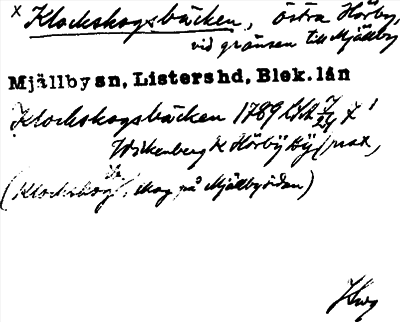 x Klockskogsbäcken, östra Hörby,
vid gränsen till Mjällby
Mjällby sn, Listers hd, Blek. län
Klockskogsbäcken 1789 LSA
Wickenberg K Hörby
(Klockskog, skog på Mjällbysidan)